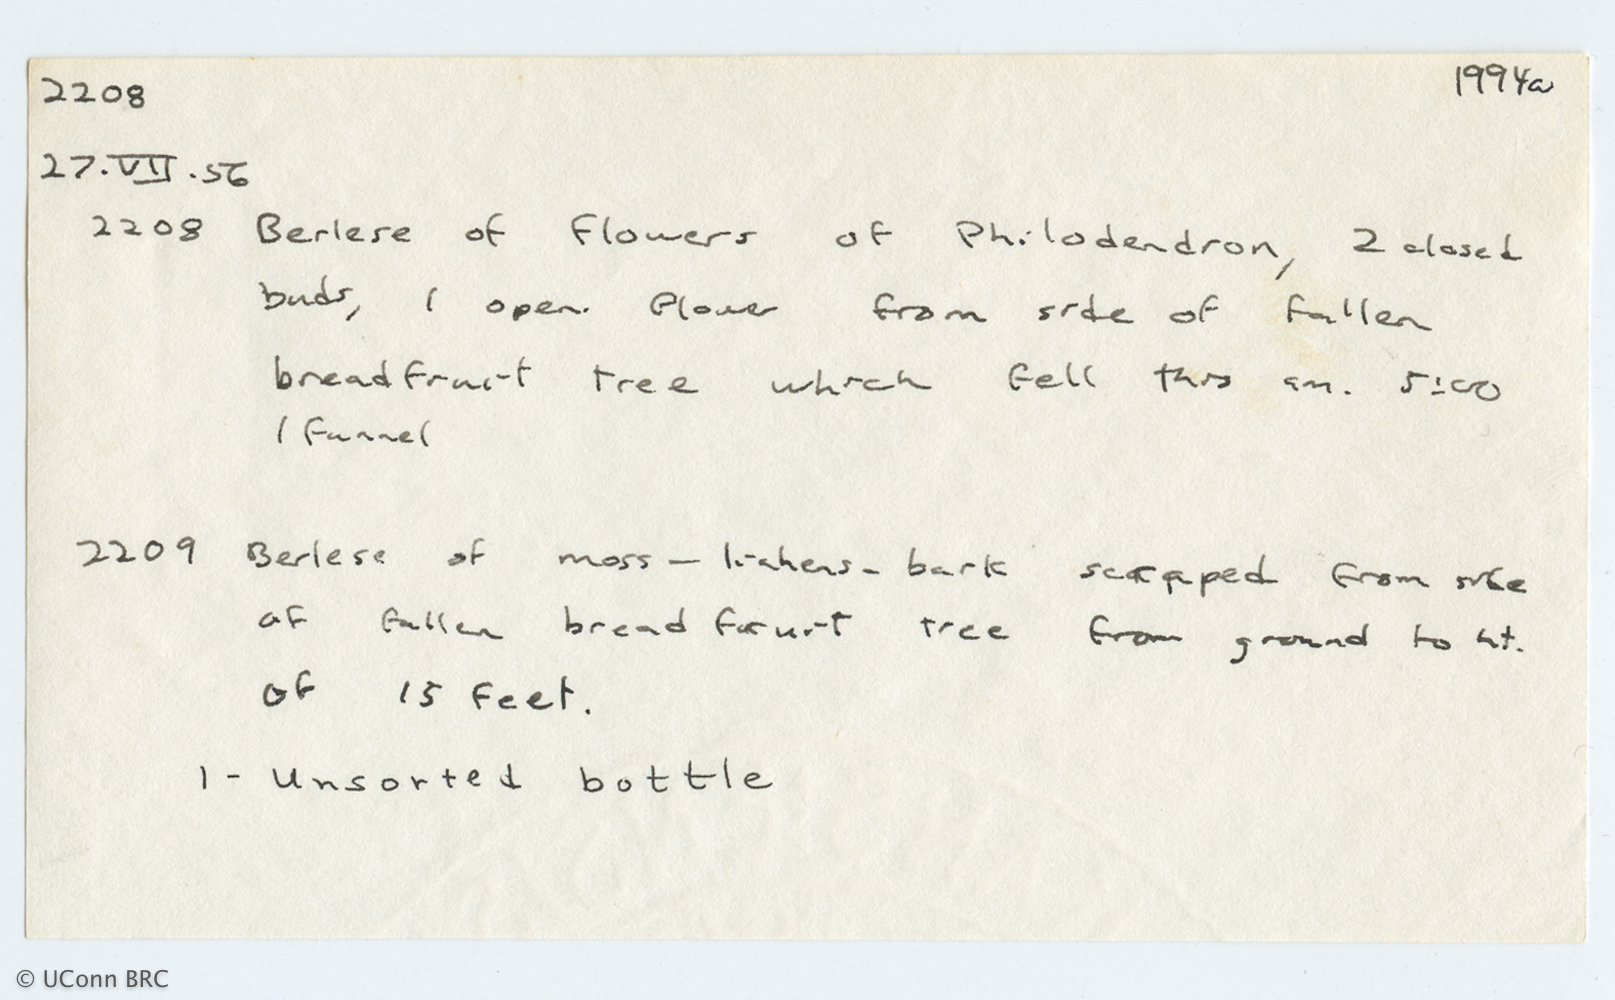 2208 1994a
27.VII.56
2208 Berlese of flowers of Philodendron, 2 closed
buds, 1 open. flower from side of fallen
breadfruit tree which fell this am. 5:00
1 funnel
2209 Berlese of moss - lichens - bark scraped from side
of fallen breadfruit tree from ground to ht.
of 15 feet.
1 - Unsorted bottle
© UConn BRC